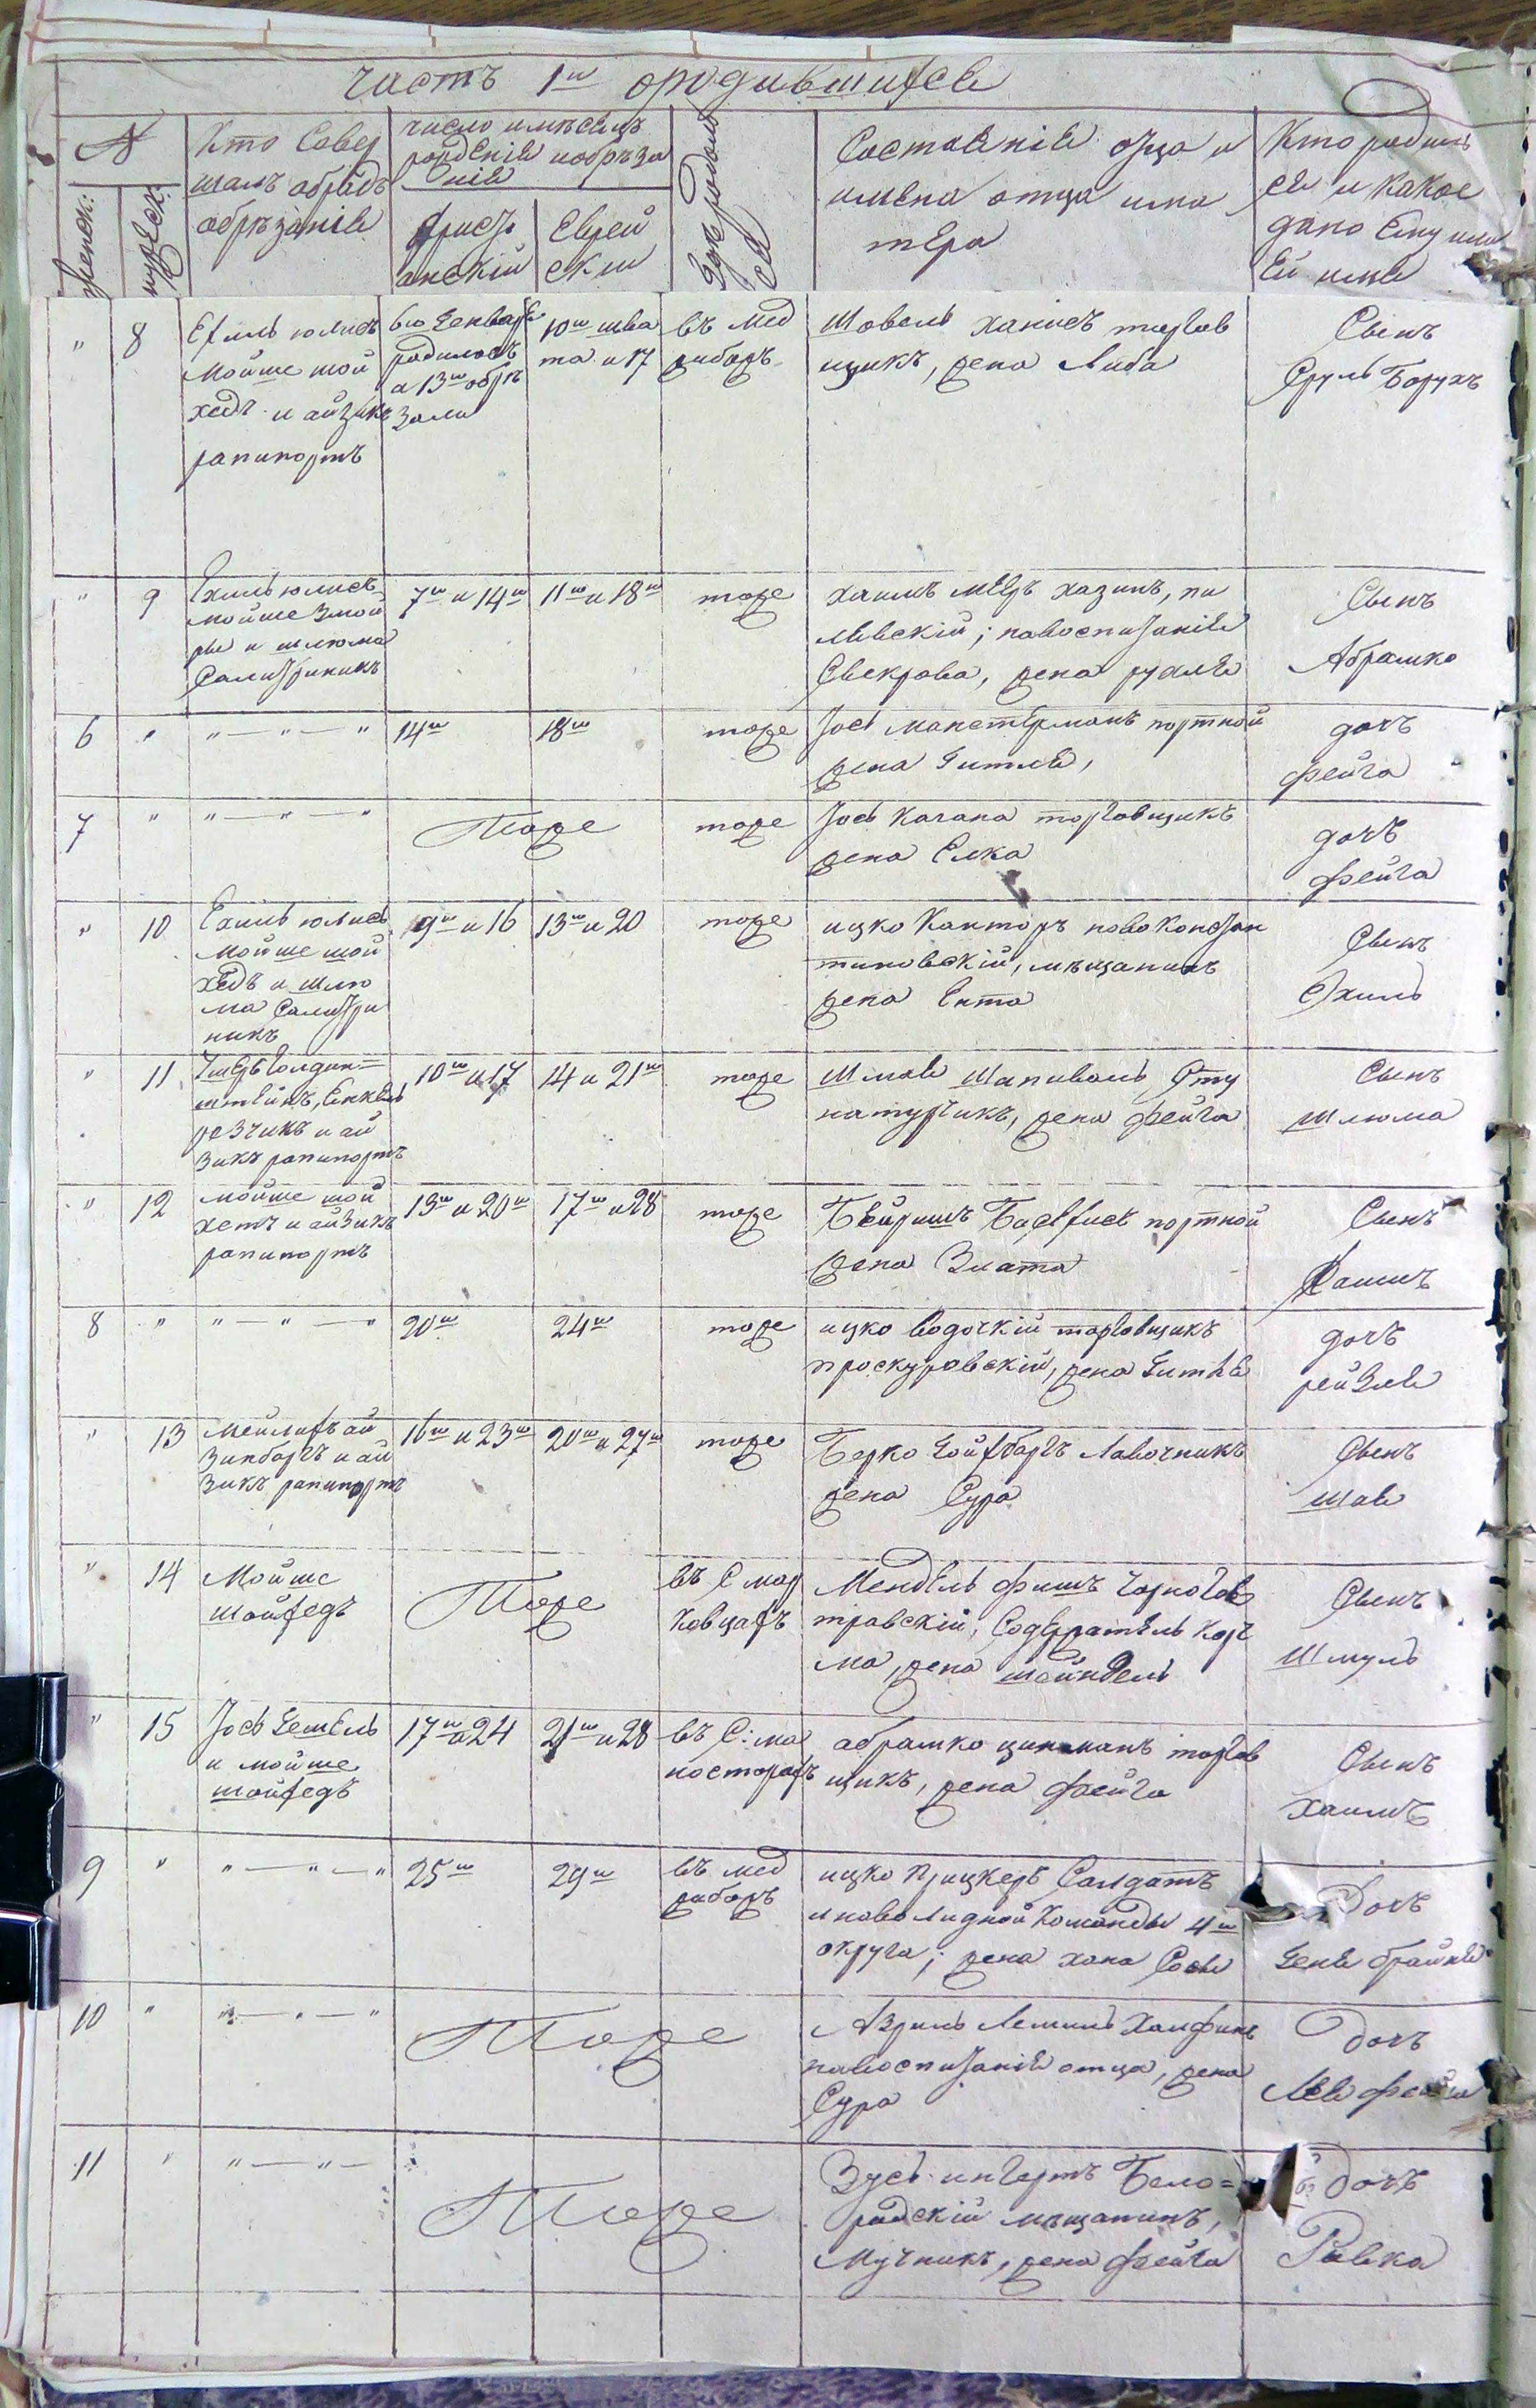 часть 1ш ородившихсе
№
женск:
мужеск:
Кто Совер
шалъ обрядъ
обрѣзаніе
число имѣсецъ
рожденіе иобрѣза
ніе
христі
анскій
Еврей
скш
Гдѣ родил
се
Состояніе отца и
имена отца има
тера
Кто родил
се и какое
дано Ему или
Ей име
" 8
Ехиль юлисъ
Мойше шой
хедъ и айзикъ
рапипортъ
6го Генваре
родилось
а 13ш обрѣ
зали
10ш шва
та и 17
въ Мед
жибожъ
Шовель ханисъ торгов
щикъ, жена Либа
Сынъ
Сруль Борухъ
" 9
Ехиль юлисъ
мойше
и шлюма
Салитрникъ
7ш и 14ш
11ш и 18ш
тоже
хаимъ мееръ хазинъ, пи
левскій; навоспитаніе
Свекрова, жена рухле
Сынъ
Абрамко
6 " " — " — "
14ш
18ш
тоже
Іось манстерманъ портной
жена Гитле,
дочъ
фейга
7 " " — " — "
Тоже
тоже
Іось качана торговщикъ
жена Елка
дочъ
фейга
" 10
Ехиль юлисъ
Мойше шой
хедъ и шлю
ма Салитри
никъ
9ш и 16
13ш и 20
тоже
ицко Канторъ новоКонстан
тиновскій, мѣщанинъ
жена Ента
Сынъ
Эхиль
" 11
Голдин=
штейнъ, Енкель
резчикъ и ай
зикъ рапипортъ
10ш и 17
14 и 21ш
тоже
Шмое Шапиваль, Сту
катурчикъ, жена фейга
Сынъ
шлюма
" 12
мойше шой
хетъ и айзикъ
рапипортъ
13ш и 20ш
17ш и 28
тоже
Бейришъ портной
жена Злата
Сынъ
Хаимъ
8 " " — " — "
20ш
24ш
тоже
ицко водочкій торговщикъ
проскуровскій, жена Гитле
дочъ
рейзле
" 13
мейлихъ ай
зинбаргъ и ай
зикъ рапипортъ
16ш и 23ш
20ш и 27ш
тоже
Берко Гойхбаргъ Лавочникъ
жена Сура
Сынъ
шае
" 14
Мойше
шойхедъ
Тоже
въ С мар
ковцахъ
Мендель фишъ Чорноов
тровскій, Содержатель Корч
ма, жена шейндель
Сынъ
Шмуль
" 15
Іось Гешель
и мойше
шойхедъ
17ш и 24
21ш и 28
въ С: мо
насторахъ
абрамко цинманъ торгов
щикъ, жена фейга
Сынъ
хаимъ
9 " " — " — "
25ш
29ш
въ мед
жибожъ
ицко прицкеръ Салдатъ
инвалидной Команды 4ш
округа; жена хана Сосе
Дочъ
Гене брайне
10 " " — " — "
Тоже
Азриль Лемиль Халфинъ
навоспитаніе отца, жена
Сура
дочъ
Лее фейга
11 " " — " —
Тоже
Зусь ингертъ Бело=
родскій мѣщанинъ,
Мучникъ, жена фейга
дочъ
Ривка